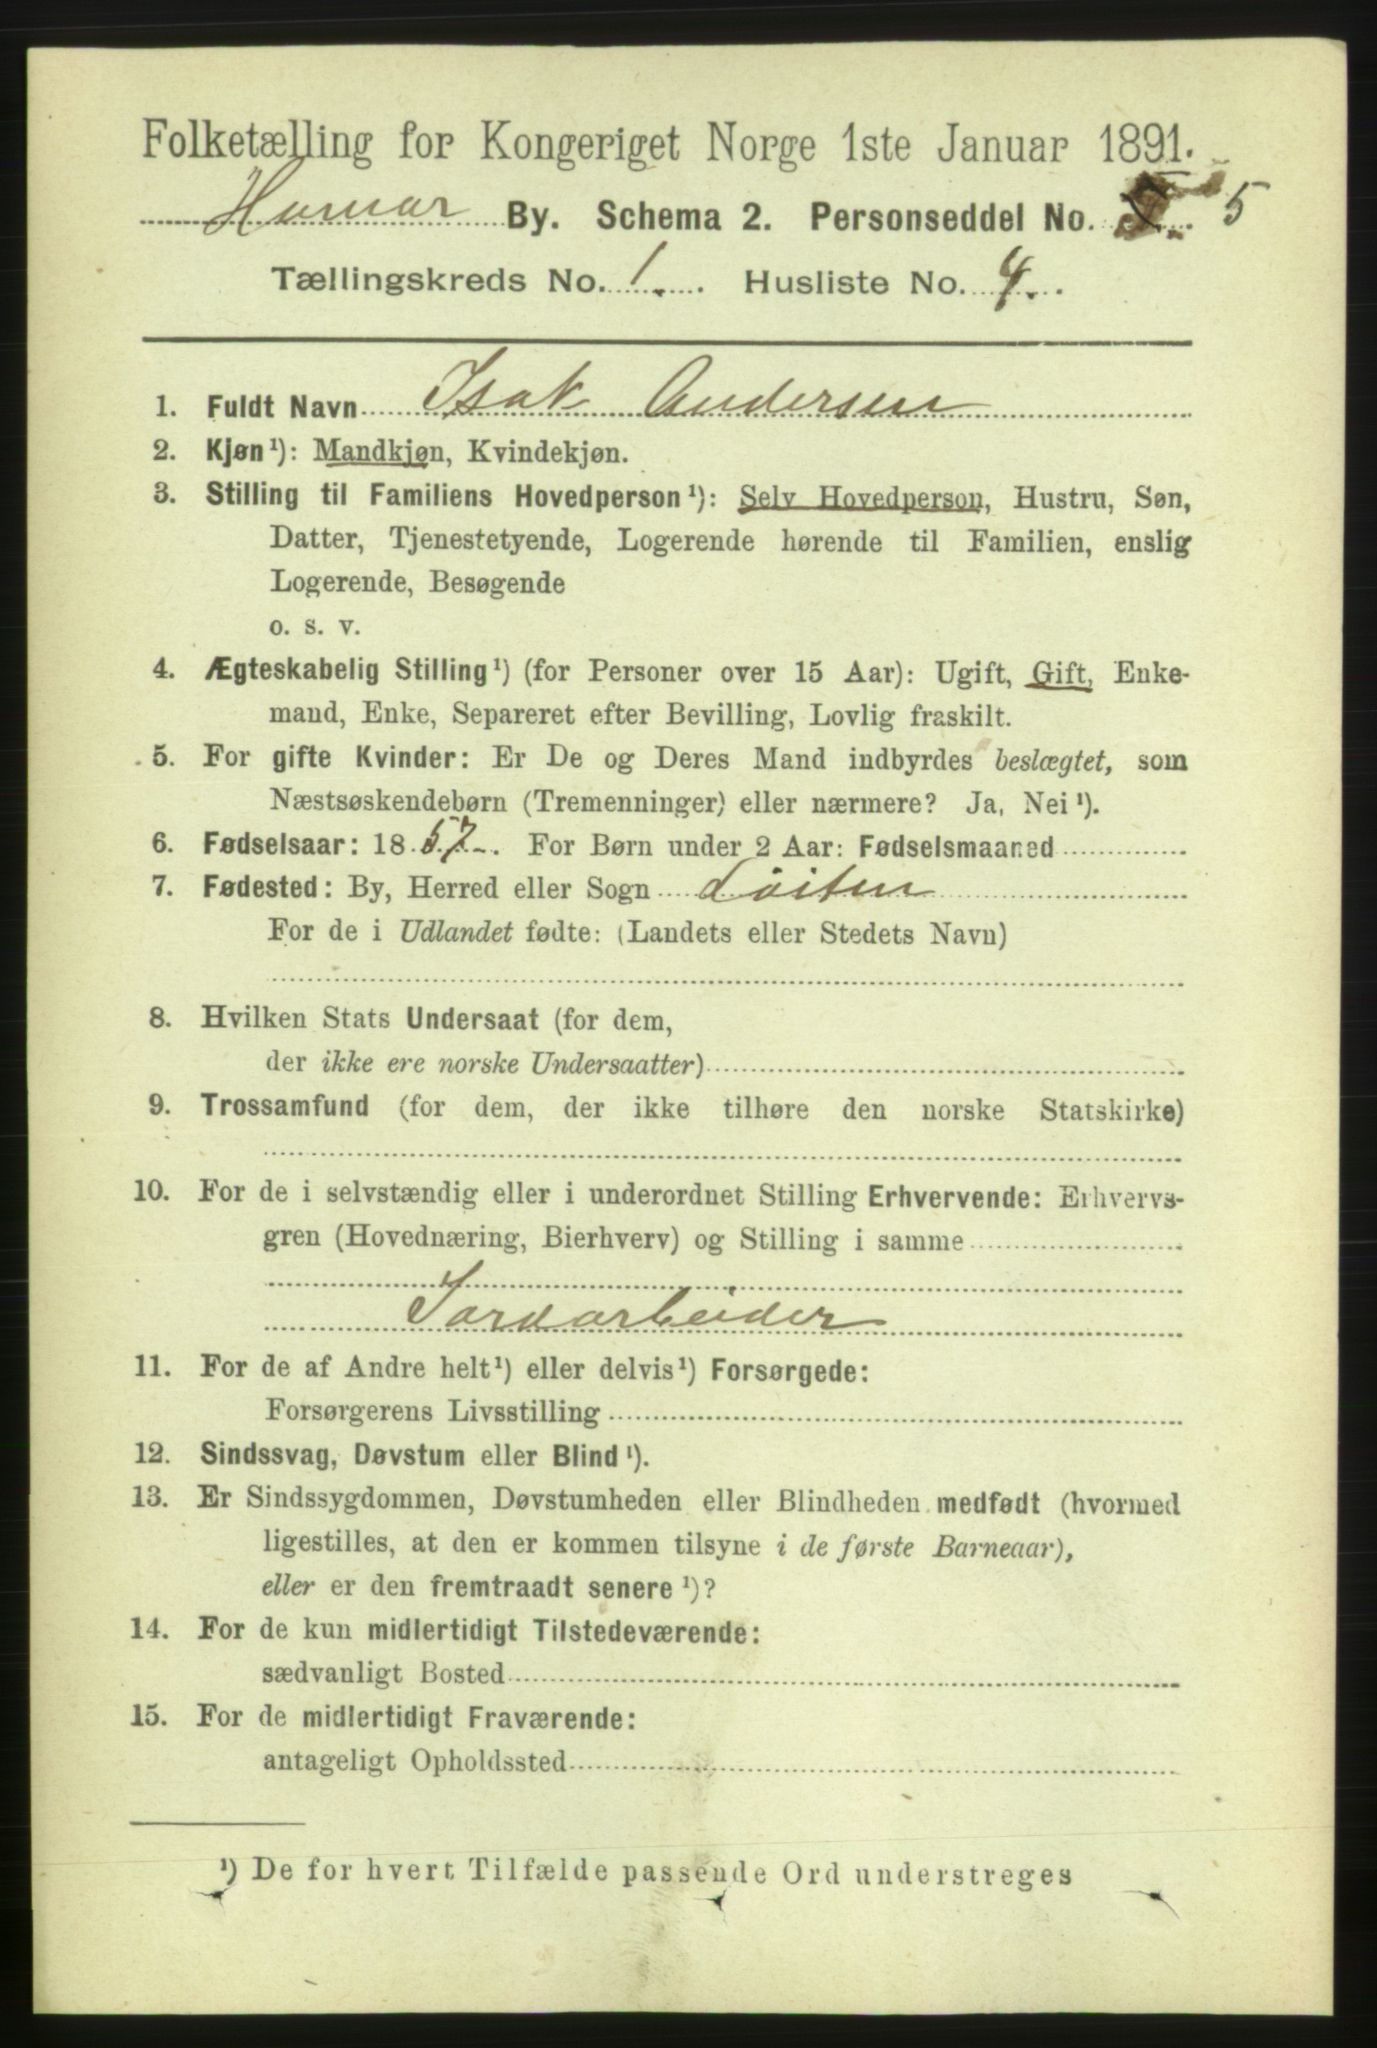 Folketælling for Kongeriget Norge 1ste Januar 1891.
Hamar By. Schema 2. Personseddel No. 5
Tællingskreds No. 1. Husliste No. 4.
1. Fuldt Navn Isak Andersen
2. Kjøn¹): Mandkjøn, Kvindekjøn.
3. Stilling til Familiens Hovedperson¹): Selv Hovedperson, Hustru, Søn,
Datter, Tjenestetyende, Logerende hørende til Familien, enslig
Logerende, Besøgende
o. s. v.
4. Ægteskabelig Stilling¹) (for Personer over 15 Aar): Ugift, Gift, Enke-
mand, Enke, Separeret efter Bevilling, Lovlig fraskilt.
5. For gifte Kvinder: Er De og Deres Mand indbyrdes beslægtet, som
Næstsøskendebørn (Tremenninger) eller nærmere? Ja, Nei¹).
6. Fødselsaar: 1857. For Børn under 2 Aar: Fødselsmaaned
7. Fødested: By, Herred eller Sogn Löiten
For de i Udlandet fødte: (Landets eller Stedets Navn)
8. Hvilken Stats Undersaat (for dem,
der ikke ere norske Undersaatter)
9. Trossamfund (for dem, der ikke tilhøre den norske Statskirke)
10. For de i selvstændig eller i underordnet Stilling Erhvervende: Erhvervs-
gren (Hovednæring, Bierhverv) og Stilling i samme
Jordarbeider
11. For de af Andre helt¹) eller delvis¹) Forsørgede:
Forsørgerens Livsstilling
12. Sindssvag, Døvstum eller Blind¹).
13. Er Sindssygdommen, Døvstumheden eller Blindheden medfødt (hvormed
ligestilles, at den er kommen tilsyne i de første Barneaar),
eller er den fremtraadt senere¹)?
14. For de kun midlertidigt Tilstedeværende:
sædvanligt Bosted
15. For de midlertidigt Fraværende:
antageligt Opholdssted
¹) De for hvert Tilfælde passende Ord understreges